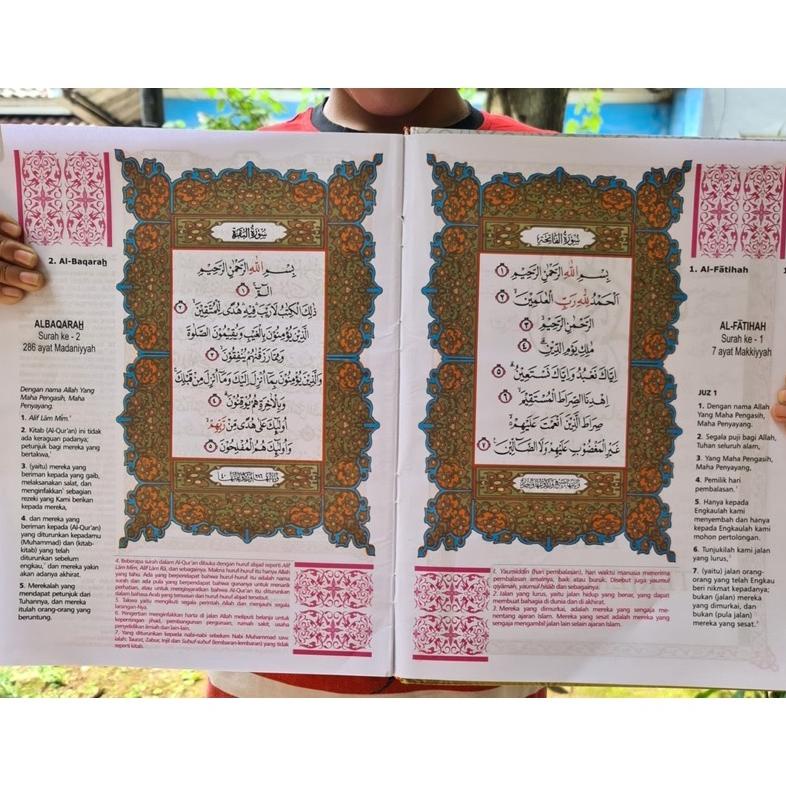 1. Al-Fātihah
AL-FĀTIHAH
Surah ke - 1
7 ayat Makkiyyah
JUZ 1
1. Dengan nama Allah
Yang Maha Pengasih,
Maha Penyayang.
2. Segala puji bagi Allah,
Tuhan seluruh alam,
3. Yang Maha Pengasih,
Maha Penyayang,
4. Pemilik hari
pembalasan.¹
5. Hanya kepada
Engkaulah kami
menyembah dan hanya
kepada Engkaulah kami
mohon pertolongan.
6. Tunjukilah kami jalan
yang lurus,²
7. (yaitu) jalan orang-
orang yang telah Engkau
beri nikmat kepadanya;
bukan (jalan) mereka
yang dimurkai, dan
bukan (pula jalan)
mereka yang sesat.³
سُورَةُ الْفَاتِحَةِ
بِسْمِ اللّٰهِ الرَّحْمٰنِ الرَّحِيْمِ ١
اَلْحَمْدُ لِلّٰهِ رَبِّ الْعٰلَمِيْنَ ٢
الرَّحْمٰنِ الرَّحِيْمِ ٣
مٰلِكِ يَوْمِ الدِّيْنِ ٤
اِيَّاكَ نَعْبُدُ وَاِيَّاكَ نَسْتَعِيْنُ ٥
اِهْدِنَا الصِّرَاطَ الْمُسْتَقِيْمَ ٦
صِرَاطَ الَّذِيْنَ اَنْعَمْتَ عَلَيْهِمْ
غَيْرِ الْمَغْضُوْبِ عَلَيْهِمْ وَلَا الضَّاۤلِّيْنَ ٧
1. Yaumiddīn (hari pembalasan), hari waktu manusia menerima
pembalasan amalnya, baik atau buruk. Disebut juga yaumul
qiyāmah, yaumul-hisāb dan sebagainya.
2. Jalan yang lurus, yaitu jalan hidup yang benar, yang dapat
membuat bahagia di dunia dan di akhirat.
3. Mereka yang dimurkai, adalah mereka yang sengaja me-
nentang ajaran Islam. Mereka yang sesat adalah mereka yang
sengaja mengambil jalan lain selain ajaran Islam.
2. Al-Baqarah
ALBAQARAH
Surah ke - 2
286 ayat Madaniyyah
Dengan nama Allah Yang
Maha Pengasih, Maha
Penyayang.
1. Alif Lām Mīm.⁴
2. Kitab (Al-Qur'an) ini tidak
ada keraguan padanya;
petunjuk bagi mereka yang
bertakwa,⁵
3. (yaitu) mereka yang
beriman kepada yang gaib,
melaksanakan salat, dan
menginfakkan⁶ sebagian
rezeki yang Kami berikan
kepada mereka,
4. dan mereka yang
beriman kepada (Al-Qur'an)
yang diturunkan kepadamu
(Muhammad) dan (kitab-
kitab) yang telah
diturunkan sebelum
engkau,⁷ dan mereka yakin
akan adanya akhirat.
5. Merekalah yang
mendapat petunjuk dari
Tuhannya, dan mereka
itulah orang-orang yang
beruntung.
سُورَةُ الْبَقَرَةِ
بِسْمِ اللّٰهِ الرَّحْمٰنِ الرَّحِيْمِ
الۤمّۤ ١
ذٰلِكَ الْكِتٰبُ لَا رَيْبَ فِيْهِ هُدًى لِّلْمُتَّقِيْنَ ٢
الَّذِيْنَ يُؤْمِنُوْنَ بِالْغَيْبِ وَيُقِيْمُوْنَ الصَّلٰوةَ
وَمِمَّا رَزَقْنٰهُمْ يُنْفِقُوْنَ ٣
وَالَّذِيْنَ يُؤْمِنُوْنَ بِمَاۤ اُنْزِلَ اِلَيْكَ وَمَاۤ اُنْزِلَ مِنْ قَبْلِكَ
وَبِالْاٰخِرَةِ هُمْ يُوْقِنُوْنَ ٤
اُولٰۤىِٕكَ عَلٰى هُدًى مِّنْ رَّبِّهِمْ
وَاُولٰۤىِٕكَ هُمُ الْمُفْلِحُوْنَ ٥
4. Beberapa surah dalam Al-Qur'an dibuka dengan huruf abjad seperti Alif
Lām Mīm, Alif Lām Rā, dan sebagainya. Makna huruf-huruf itu hanya Allah
yang tahu. Ada yang berpendapat bahwa huruf-huruf itu adalah nama
surah dan ada pula yang berpendapat bahwa gunanya untuk menarik
perhatian, atau untuk mengisyaratkan bahwa Al-Qur'an itu diturunkan
dalam bahasa Arab yang tersusun dari huruf-huruf abjad tersebut.
5. Takwa yaitu mengikuti segala perintah Allah dan menjauhi segala
larangan-Nya.
6. Pengertian menginfakkan harta di jalan Allah meliputi belanja untuk
kepentingan jihad, pembangunan perguruan, rumah sakit, usaha
penyelidikan ilmiah dan lain-lain.
7. Yang diturunkan kepada nabi-nabi sebelum Nabi Muhammad saw.
ialah: Taurat, Zabur, Injil dan Suhuf-suhuf (lembaran-lembaran) yang tidak
seperti kitab.